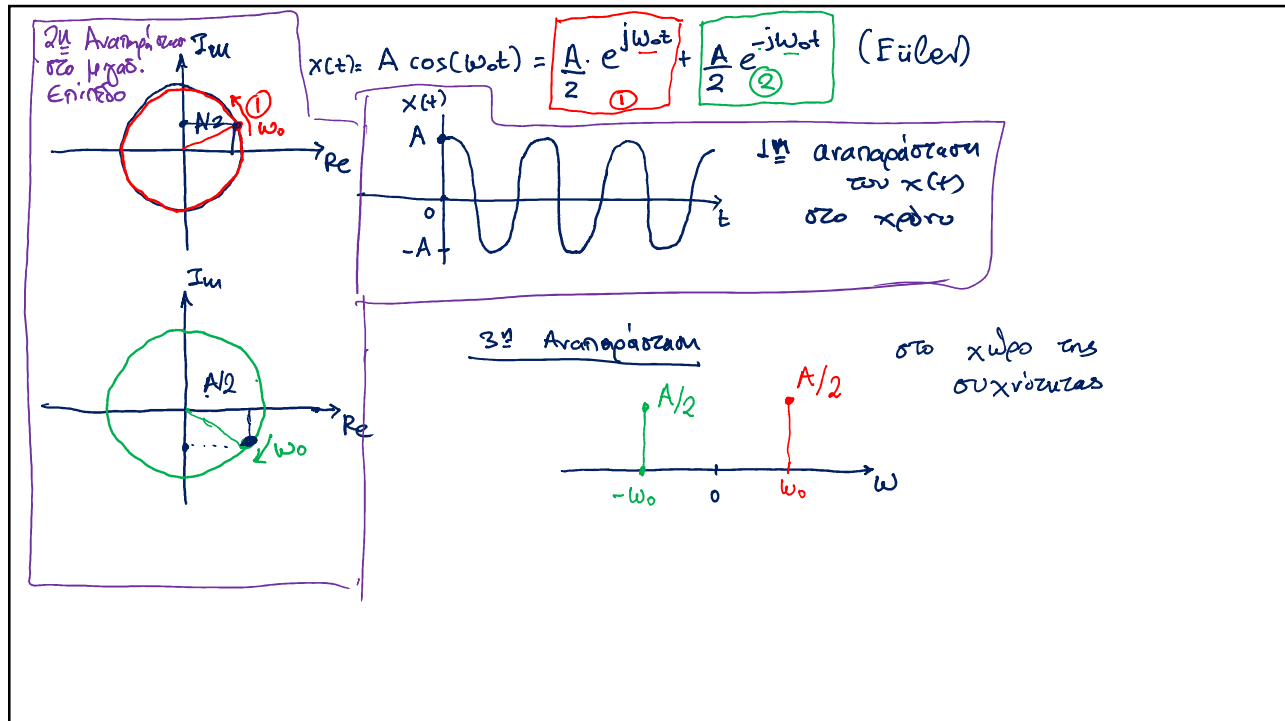 2η Αναπαράσταση
στο μιγαδ.
Επίπεδο
Im
A/2
①
ω₀
Re
x(t) = A cos(ω₀t) = A/2 · e^{jω₀t} + A/2 e^{-jω₀t} (Eüler)
① ②
x(t)
A
0
-A
t
1η αναπαράσταση
του x(t)
στο χρόνο
Im
A/2
Re
ω₀
3η Αναπαράσταση
στο χώρο της
συχνότητας
A/2
A/2
-ω₀
0
ω₀
ω